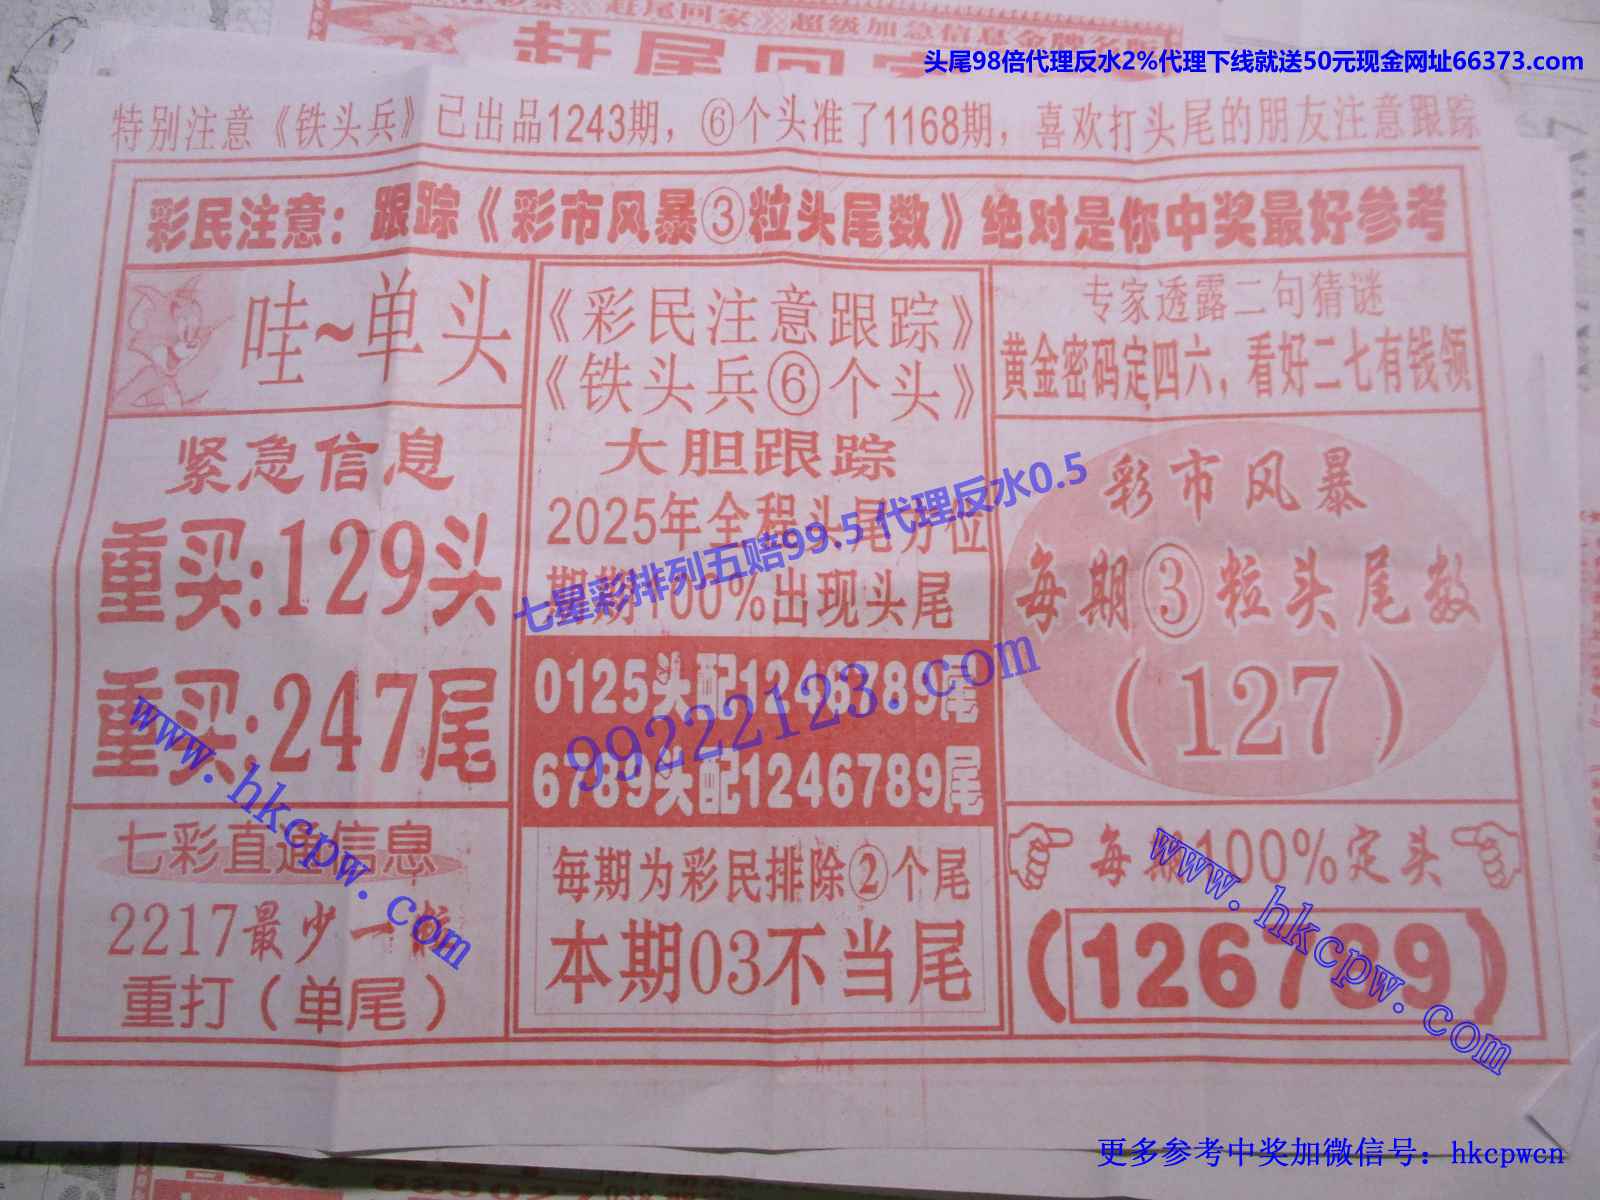 赶尾回家
头尾98倍代理反水2%代理下线就送50元现金网址66373.com
特别注意《铁头兵》已出品1243期，⑥个头准了1168期，喜欢打头尾的朋友注意跟踪
彩民注意：跟踪《彩市风暴③粒头尾数》绝对是你中奖最好参考
哇~单头
紧急信息
重买:129头
重买:247尾
七彩直通信息
2217最少一
重打（单尾）
《彩民注意跟踪》
《铁头兵⑥个头》
大胆跟踪
2025年全程头尾分位
期期100%出现头尾
0125头配1246789尾
6789头配1246789尾
每期为彩民排除②个尾
本期03不当尾
专家透露二句猜谜
黄金密码定四六，看好二七有钱领
彩市风暴
每期③粒头尾数
（127）
每期100%定头
（126789）
七星彩排列五赔99.5 代理反水0.5
99222123.com
www.hkcpw.com
www.hkcpw.com
更多参考中奖加微信号：hkcpwcn